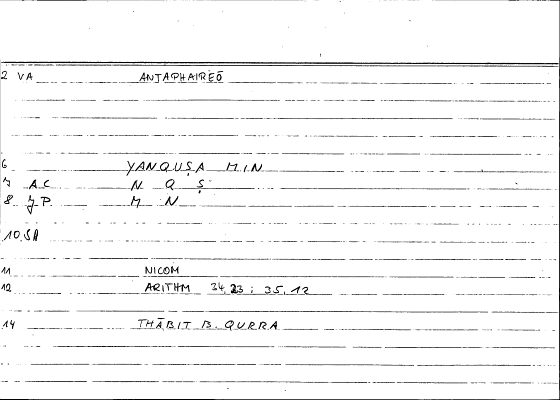 2 VA ANTAPHAIREŌ
6 YANQUṢA MIN
7 AC N Q Ṣ
8 JP M N
10 SA
11 NICOM
12 ARITHM 34,23 ; 35,12
14 THĀBIT B. QURRA